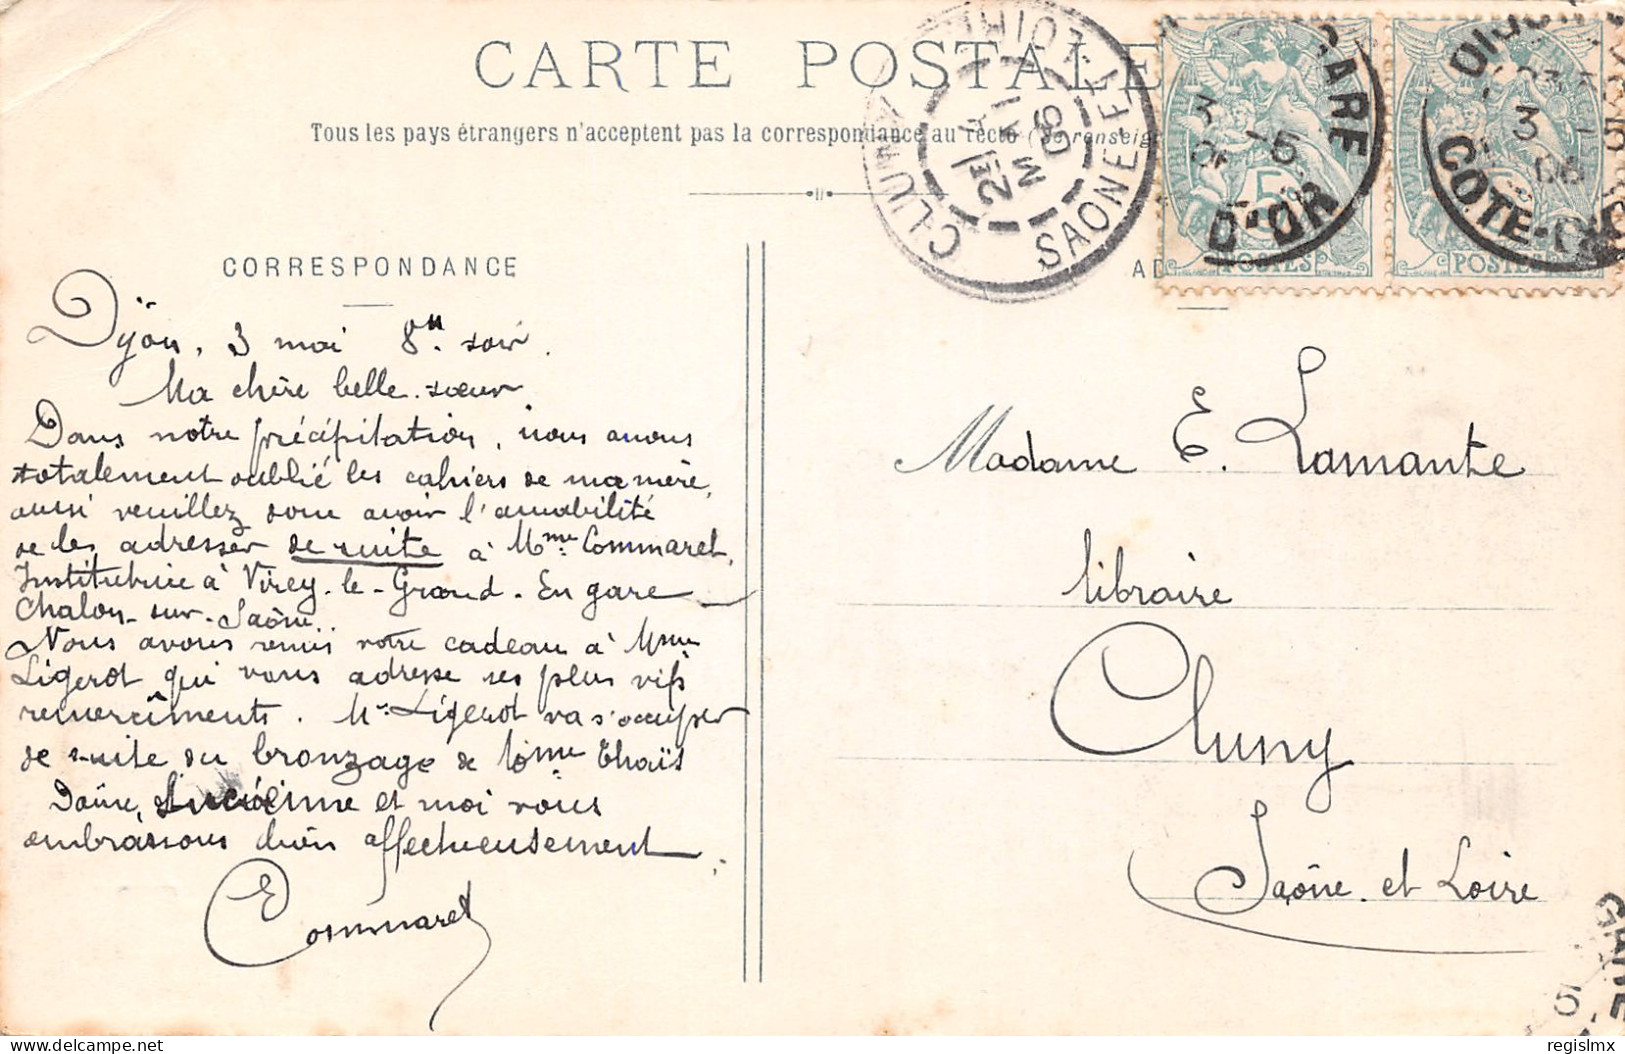 CARTE POSTALE
Tous les pays étrangers n'acceptent pas la correspondance au recto (Se renseig
CORRESPONDANCE
AD
CLUNY
SAONE ET LOIRE
4
MAI
06
GARE
3 -5
06
D'OR
POSTES
DIJON
3
06
COTE-D
POSTES
Dijon, 3 mai 8H. soir.
Ma chère belle-sœur,
Dans notre précipitation, nous avons
totalement oublié les cahiers de ma mère,
aussi veuillez donc avoir l'amabilité
de les adresser de suite à Mme Commaret,
Institutrice à Virey-le-Grand. En gare
Chalon-sur-Saône.
Nous avons remis votre cadeau à Mme
Ligerot qui vous adresse ses plus vifs
remerciments. Mr. Ligerot va s'occuper
de suite du bronzage de Thaïs
et moi vous
embrassons bien affectueusement
E Commaret
Madame E. Lamante
libraire
Cluny
Saône et Loire
GARE
5
regislmx
delcampe.net